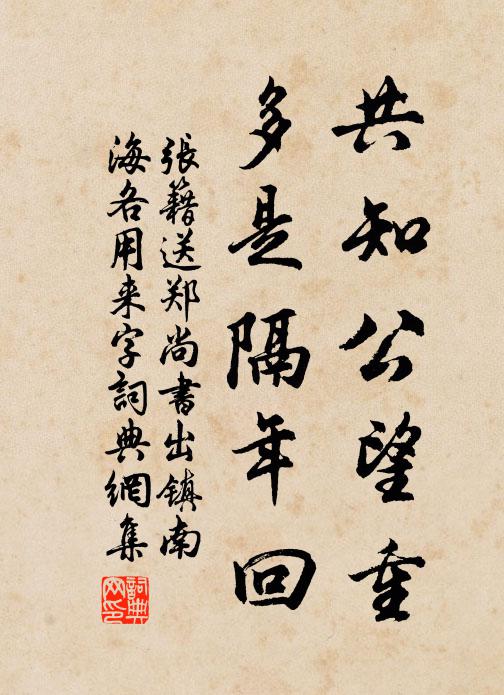 共知公望重
多是隔年回
張籍送郑尚書出镇南
海各用来字詞典網集
詞典
网印